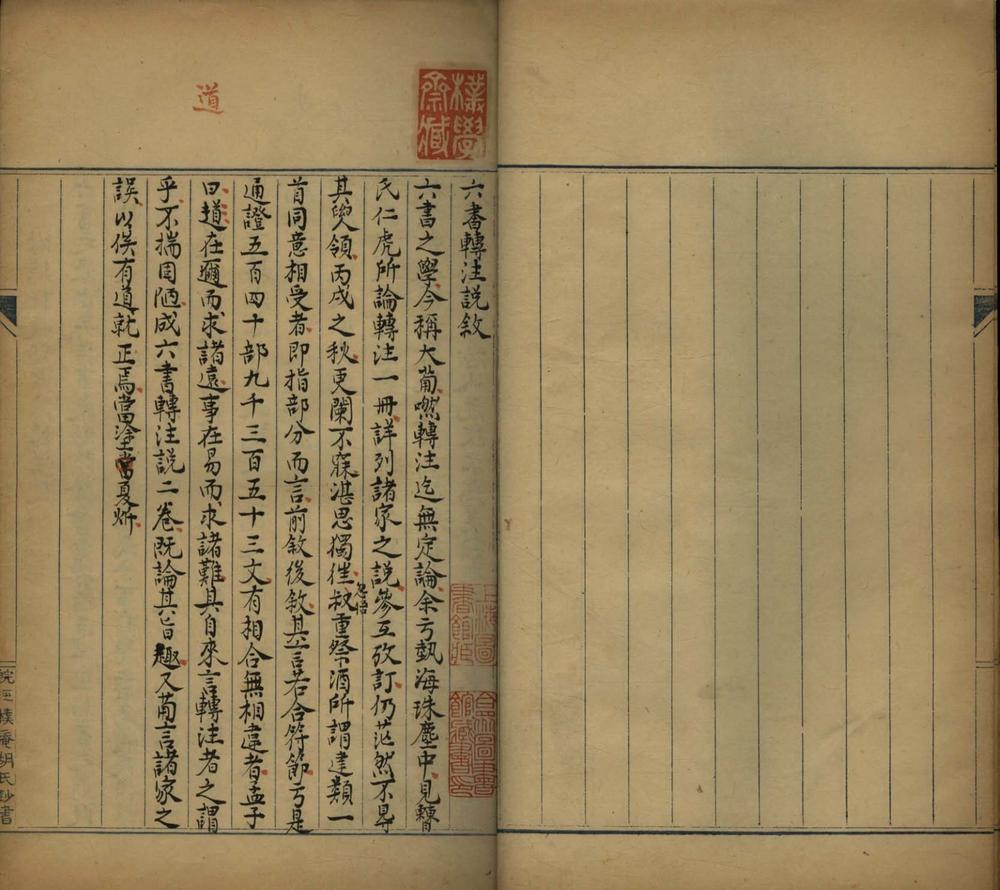 六書轉注說敘
六書之學今稱大葡嘫轉注迄無定論余亏埶海珠塵中見𣍘
氏仁虎所論轉注一冊詳列諸家之說參互攷訂仍茫然不㝵
其㬰領丙戌之秋更闌不寐湛思獨徃忽悟叔重祭酒所謂建類一
首同意相受者即指部分而言前敘後敘其言若合符節亏是
通證五百四十部九千三百五十三文有相合無相違者孟子
曰道在邇而求諸遠事在易而求諸難其自來言轉注者之謂
乎不揣固陋成六書轉注說二卷既論其旨趣又葡言諸家之
誤以俟有道就正焉當塗夏炘
道
樸學齋藏
上海圖書館藏
合眾圖書館藏書印
皖涇樸庵胡氏鈔書